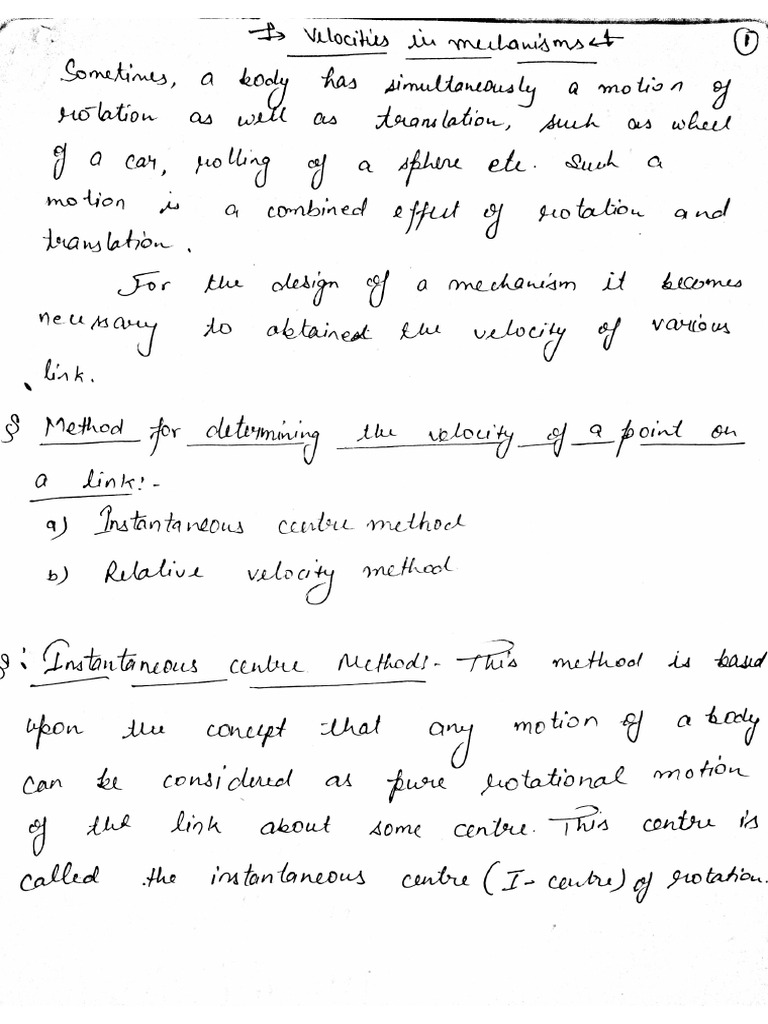 Velocities in mechanisms
1
Sometimes, a body has simultaneously a motion of
rotation as well as translation, such as wheel
of a car, rolling of a sphere etc. Such a
motion is a combined effect of rotation and
translation.
For the design of a mechanism it becomes
necessary to obtained the velocity of various
link.
§ Method for determining the velocity of a point on
a link:-
a) Instantaneous centre method
b) Relative velocity method
§: Instantaneous centre Method:- This method is based
upon the concept that any motion of a body
can be considered as pure rotational motion
of the link about some centre. This centre is
called the instantaneous centre (I-centre) of rotation.